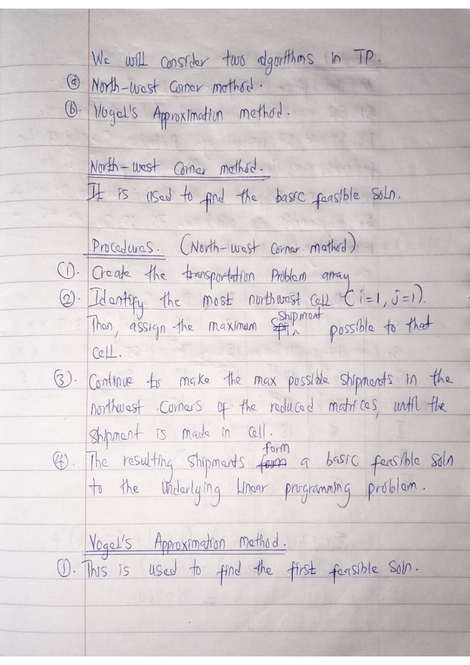 We will consider two algorithms in TP.
(a) North-west Corner method.
(b). Vogel's Approximation method.
North-west Corner method.
It is used to find the basic feasible Soln.
Procedures. (North-west corner method)
(1). Create the transportation Problem array
(2). Identify the most northwest cell (i=1, j=1).
Then, assign the maximum Shipment possible to that
cell.
(3). Continue to make the max possible shipments in the
northwest Corners of the reduced matrices, until the
shipment is made in cell.
(4). The resulting shipments form a basic feasible soln
to the Underlying Linear programming problem.
Vogel's Approximation method.
(1). This is used to find the first feasible Soln.